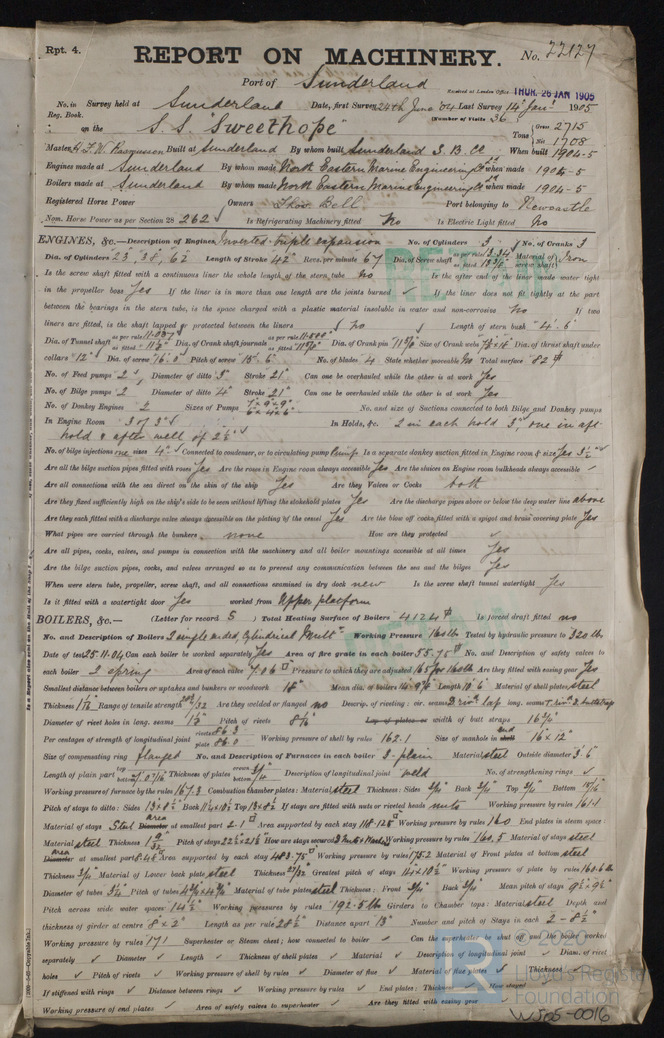 Rpt. 4.
REPORT ON MACHINERY.
No. 22127
Port of Sunderland
Received at London Office THUR. 26 JAN 1905
No. in Survey held at Sunderland Date, first Survey 24th June 04 Last Survey 14 Jan 1905
Reg. Book.
(Number of Visits 36)
on the S.S. "Sweethope"
Tons Gross 2715
Net 1708
Master H. F. W. Rasmussen Built at Sunderland By whom built Sunderland S. B. Co When built 1904-5
Engines made at Sunderland By whom made North Eastern Marine Engineering Co Ld when made 1904-5
Boilers made at Sunderland By whom made North Eastern Marine Engineering Co Ld when made 1904-5
Registered Horse Power Owners Thos Bell Port belonging to Newcastle
Nom. Horse Power as per Section 28 262 Is Refrigerating Machinery fitted No Is Electric Light fitted No
ENGINES, &c.—Description of Engines Inverted triple expansion No. of Cylinders 3 No. of Cranks 3
Dia. of Cylinders 23", 38", 62" Length of Stroke 42" Revs. per minute 67 Dia. of Screw shaft as per rule 13.34 as fitted Material of screw shaft Iron
Is the screw shaft fitted with a continuous liner the whole length of the stern tube No Is the after end of the liner made water tight
in the propeller boss Yes If the liner is in more than one length are the joints burned ✓ If the liner does not fit tightly at the part
between the bearings in the stern tube, is the space charged with a plastic material insoluble in water and non-corrosive No If two
liners are fitted, is the shaft lapped or protected between the liners No Length of stern bush 4'. 6"
Dia. of Tunnel shaft as per rule 11.037 as fitted Dia. of Crank shaft journals as per rule 11.588 as fitted Dia. of Crank pin Size of Crank webs Dia. of thrust shaft under
collars 12" Dia. of screw 16'. 0" Pitch of screw 15'. 6" No. of blades 4 State whether moveable No Total surface 82
No. of Feed pumps 2 Diameter of ditto 3" Stroke 21" Can one be overhauled while the other is at work Yes
No. of Bilge pumps 2 Diameter of ditto 4" Stroke 21" Can one be overhauled while the other is at work Yes
No. of Donkey Engines 2 Sizes of Pumps 7" x 9" x 9" 6" x 4" x 6" No. and size of Suctions connected to both Bilge and Donkey pumps
In Engine Room 3 of 3" In Holds, &c. 2 in each hold 3", one in aft
hold & after well of 2½"
No. of bilge injections one sizes 4" Connected to condenser, or to circulating pump pump Is a separate donkey suction fitted in Engine room & size Yes 3½"
Are all the bilge suction pipes fitted with roses Yes Are the roses in Engine room always accessible Yes Are the sluices on Engine room bulkheads always accessible ✓
Are all connections with the sea direct on the skin of the ship Yes Are they Valves or Cocks both
Are they fixed sufficiently high on the ship's side to be seen without lifting the stokehold plates Yes Are the discharge pipes above or below the deep water line above
Are they each fitted with a discharge valve always accessible on the plating of the vessel Yes Are the blow off cocks fitted with a spigot and brass covering plate Yes
What pipes are carried through the bunkers none How are they protected ✓
Are all pipes, cocks, valves, and pumps in connection with the machinery and all boiler mountings accessible at all times Yes
Are the bilge suction pipes, cocks, and valves arranged so as to prevent any communication between the sea and the bilges Yes
When were stern tube, propeller, screw shaft, and all connections examined in dry dock new Is the screw shaft tunnel watertight Yes
Is it fitted with a watertight door Yes worked from Upper platform
BOILERS, &c.— (Letter for record S) Total Heating Surface of Boilers 4124 Is forced draft fitted no
No. and Description of Boilers 2 single ended, Cylindrical Mult. Working Pressure 160 lbs Tested by hydraulic pressure to 320 lbs
Date of test 25.11.04 Can each boiler be worked separately Yes Area of fire grate in each boiler 55.75 No. and Description of safety valves to
each boiler 2 spring Area of each valve 7.06 Pressure to which they are adjusted 165 for 160 lb Are they fitted with easing gear Yes
Smallest distance between boilers or uptakes and bunkers or woodwork 16" Mean dia. of boilers Length 10'. 6" Material of shell plates steel
Thickness Range of tensile strength Are they welded or flanged no Descrip. of riveting: cir. seams D. riv. lap long. seams
Diameter of rivet holes in long. seams Pitch of rivets Lap of plates or width of butt straps
Per centages of strength of longitudinal joint rivets 86.3 plate 86.0 Working pressure of shell by rules 162.1 Size of manhole in end 16" x 12"
Size of compensating ring flanged No. and Description of Furnaces in each boiler 3 plain Material steel Outside diameter 3'. 6"
Length of plain part Thickness of plates crown 3/4 bottom 3/4 Description of longitudinal joint weld No. of strengthening rings ✓
Working pressure of furnace by the rules 167.3 Combustion chamber plates: Material steel Thickness: Sides Back Top Bottom
Pitch of stays to ditto: Sides Back Top If stays are fitted with nuts or riveted heads nuts Working pressure by rules 161.1
Material of stays Steel Area Diameter at smallest part 2.1 Area supported by each stay 118.125 Working pressure by rules 160 End plates in steam space:
Material steel Thickness Pitch of stays How are stays secured Working pressure by rules 160.5 Material of stays steel
Area Diameter at smallest part 8.48 Area supported by each stay 483.75 Working pressure by rules 175.2 Material of Front plates at bottom steel
Thickness Material of Lower back plate steel Thickness Greatest pitch of stays Working pressure of plate by rules 160.6 lb
Diameter of tubes 3¼" Pitch of tubes Material of tube plates steel Thickness: Front Back Mean pitch of stays
Pitch across wide water spaces 14½" Working pressures by rules 192.5 lb Girders to Chamber tops: Material steel Depth and
thickness of girder at centre 8" x 2" Length as per rule 28½" Distance apart 13" Number and pitch of Stays in each 2 - 8½"
Working pressure by rules 171 Superheater or Steam chest; how connected to boiler ✓ Can the superheater be shut off and the boiler worked
separately ✓ Diameter ✓ Length ✓ Thickness of shell plates ✓ Material ✓ Description of longitudinal joint ✓ Diam. of rivet
holes ✓ Pitch of rivets ✓ Working pressure of shell by rules ✓ Diameter of flue ✓ Material of flue plates ✓ Thickness ✓
If stiffened with rings ✓ Distance between rings ✓ Working pressure by rules ✓ End plates: Thickness ✓ How stayed
Working pressure of end plates ✓ Area of safety valves to superheater ✓ Are they fitted with easing gear
© 2020
Lloyd's Register
Foundation
WS05-0016